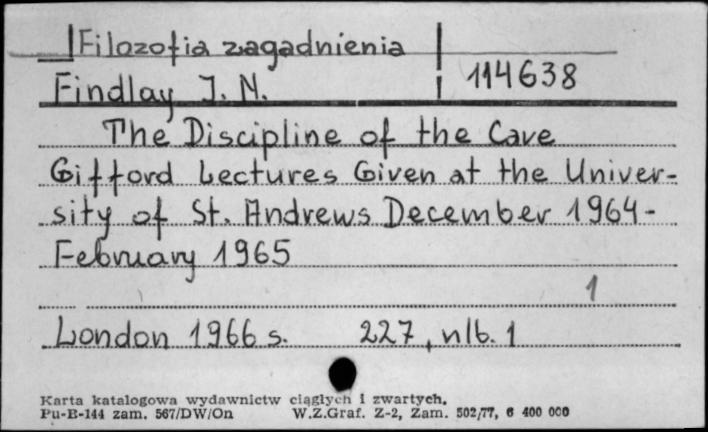 Filozofia zagadnienia
Findlay J. N. 114638
The Discipline of the Cave
Gifford Lectures Given at the Univer-
sity of St. Andrews December 1964-
February 1965
1
London 1966 s. 227, nlb. 1
Karta katalogowa wydawnictw ciągłych i zwartych.
Pu-B-144 zam. 567/DW/On W.Z.Graf. Z-2, Zam. 502/77, 6 400 000